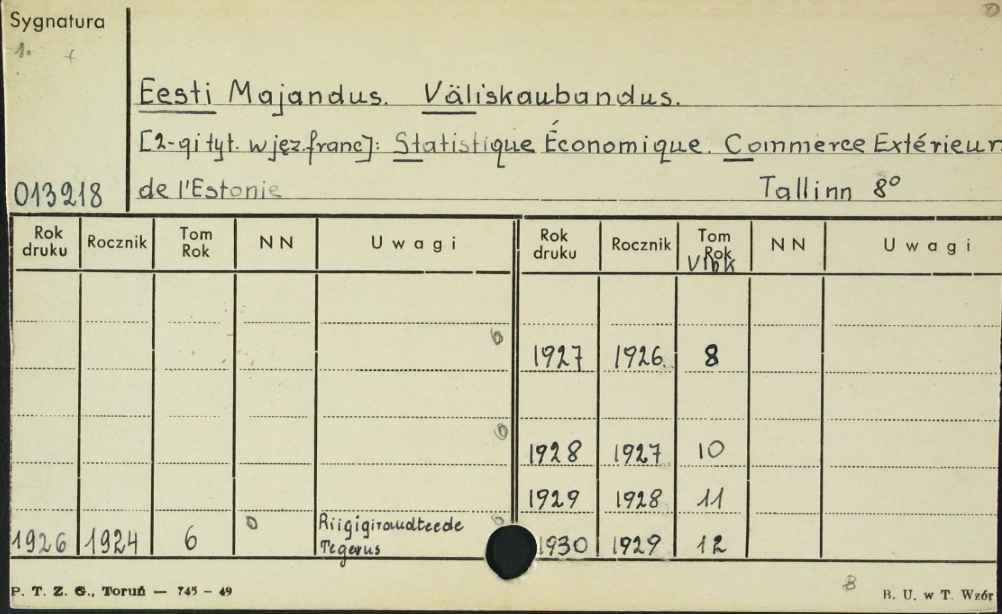 Sygnatura
1.
Eesti Majandus. Väliskaubandus.
[2-gi tyt. w jęz. franc]: Statistique Économique. Commerce Extérieur
013218 de l'Estonie Tallinn 8º
Rok druku Rocznik Tom Rok NN Uwagi Rok druku Rocznik Tom Rok NN Uwagi
1927 1926 8
1928 1927 10
1929 1928 11
1926 1924 6 0 Riigigiraudteede
Tegevus 1930 1929 12
P. T. Z. G., Toruń — 745 – 49 B. U. w T. Wzór